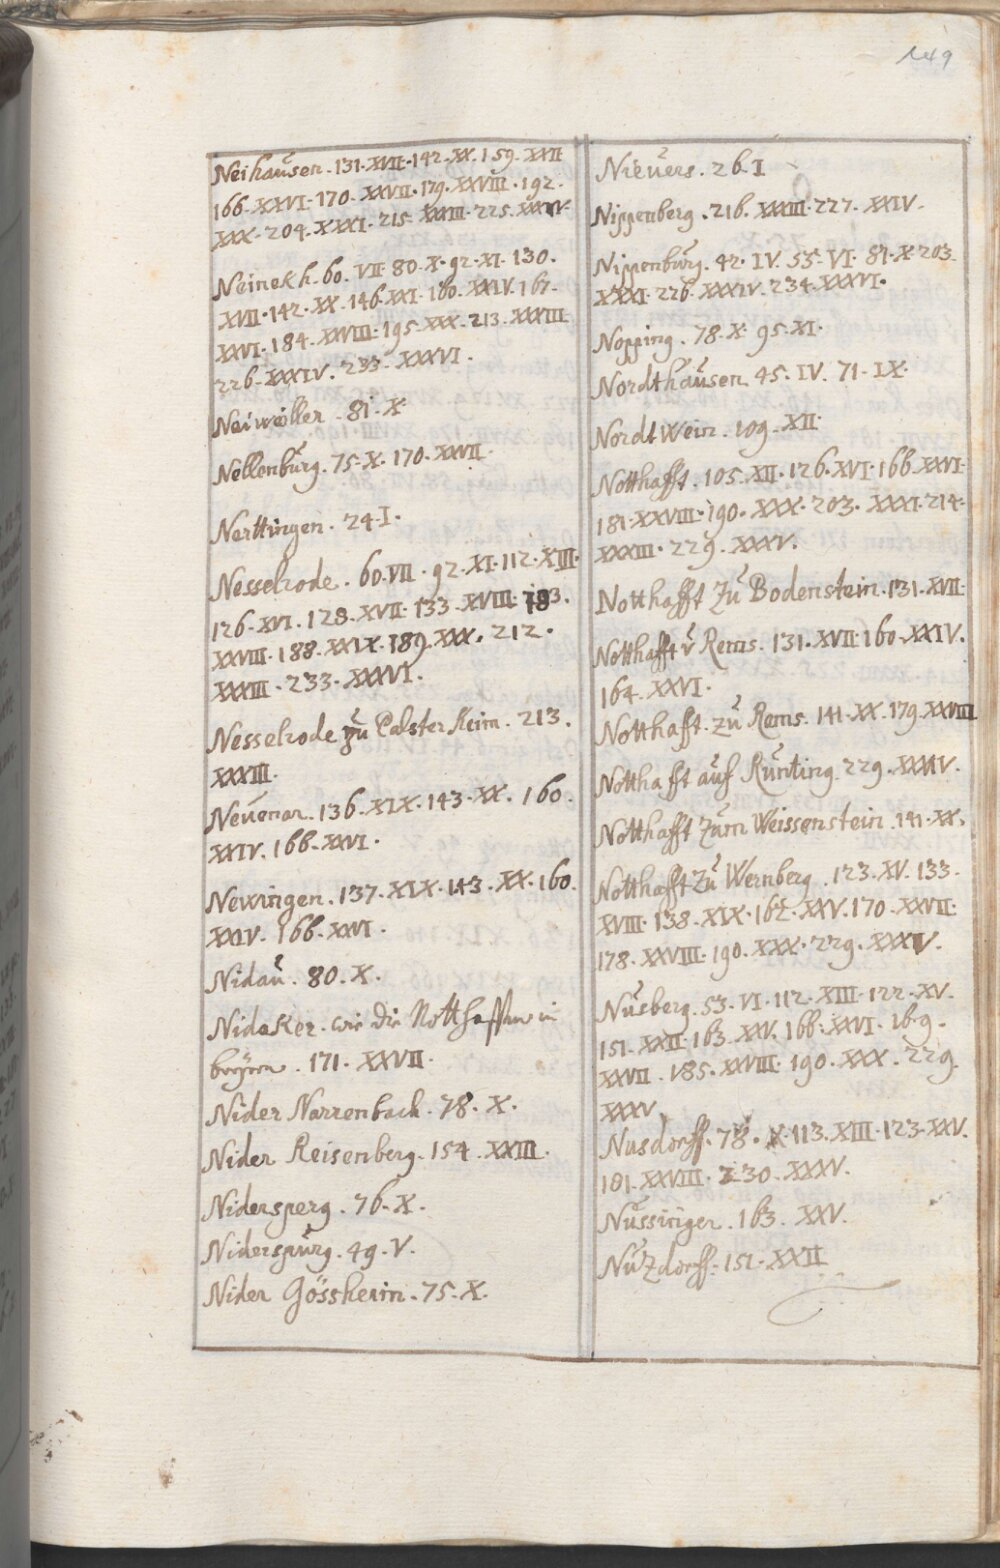 149
Neihaüsen. 131. XVII. 142. XX. 159. XXII
166. XXVI. 170. XXVII. 179. XXVIII. 192.
XXX. 204. XXXI. 215. XXXIII. 225. XXXIV.
Neinekh. 60. VII. 80. X. 92. XI. 130.
XVII. 142. XX. 146. XXI. 160. XXIV. 167.
XXVI. 184. XXVIII. 195. XXX. 213. XXXIII
226. XXXIV. 233. XXXVI.
Neiweiller. 81. X
Nellenbürg. 75. X. 170. XXVII.
Nerttingen. 24. I.
Nesselrode. 60. VII. 92. XI. 112. XIII.
126. XVI. 128. XVII. 133. XVIII. 183.
XXVIII. 188. XXIX. 189. XXX. 212.
XXXIII. 233. XXXVI.
Nesselrode zü Calster Keim. 213.
XXXIII.
Neüenar. 136. XIX. 143. XX. 160.
XXIV. 166. XXVI.
Newingen. 137. XIX. 143. XX. 160.
XXIV. 166. XXVI.
Nidaü. 80. X.
Nidaker. wie die Notthafften in
beyren. 171. XXVII.
Nider Narrenbach. 78. X.
Nider Reisenberg. 154. XXIII.
Nidersperg. 76. X.
Niderspürg. 49. V.
Nider Gössheim. 75. X.
Nieüers. 26. I
Nippenberg. 216. XXXIII. 227. XXIV.
Nippenbürg. 42. IV. 55. VI. 81. X. 203.
XXXI. 226. XXXIV. 234. XXXVI.
Nopping. 78. X. 95. XI.
Nordthaüsen. 45. IV. 71. IX.
Nordt Wein. 109. XII.
Notthafft. 105. XII. 126. XVI. 166. XXVI.
181. XXVIII. 190. XXX. 203. XXXI. 214.
XXXIII. 229. XXXV.
Notthafft Zü Bodenstein. 131. XVII.
Notthafft v Rems. 131. XVII. 160. XXIV.
164. XXVI.
Notthafft. zü Rems. 141. XX. 179. XXVIII
Notthafft aüf Rünting. 229. XXXV.
Notthafft Züm Weissenstein. 141. XX.
Notthafft Zü Wernberg. 123. XV. 133.
XVIII. 138. XIX. 162. XXV. 170. XXVII.
178. XXVIII. 190. XXX. 229. XXXV.
Nüsberg. 53. VI. 112. XIII. 122. XV.
151. XXII. 163. XXV. 166. XXVI. 169.
XXVII. 185. XXVIII. 190. XXX. 229.
XXXV.
Nusdorff. 78. X. 113. XIII. 123. XXV.
181. XXVIII. 230. XXXV.
Nüssinger. 163. XXV.
Nützdorff. 151. XXII